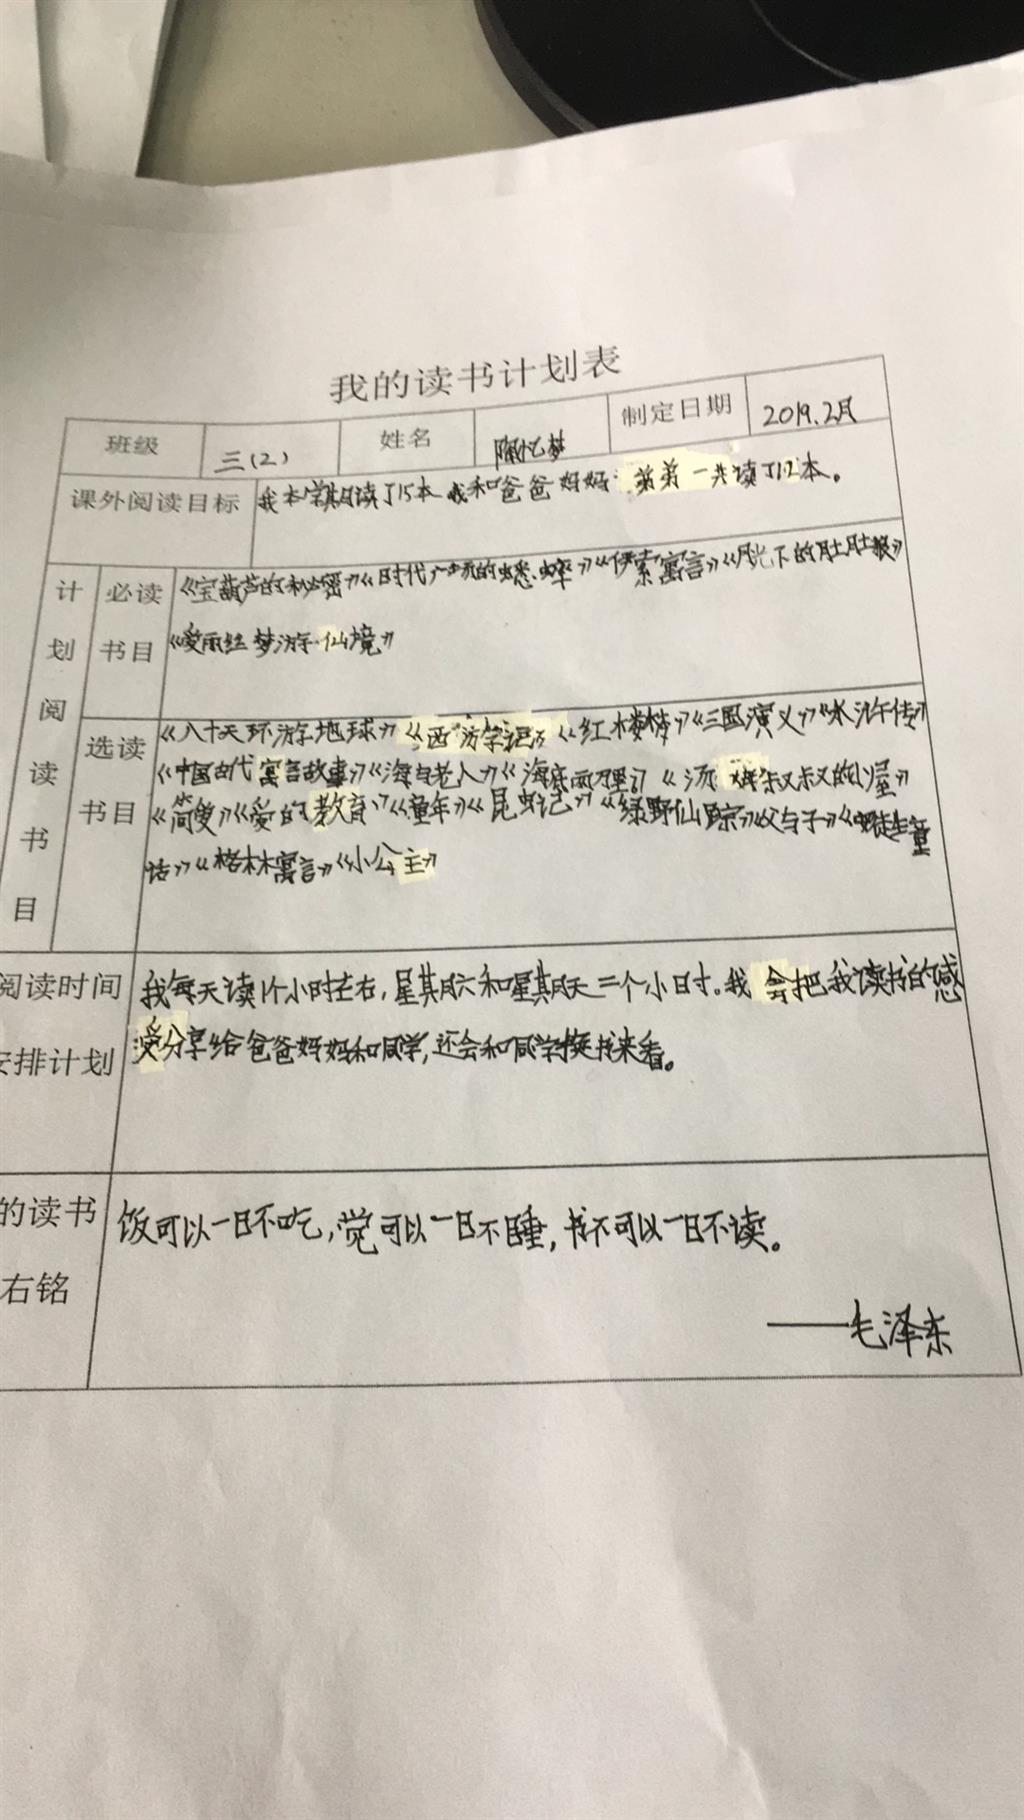 我的读书计划表
班级 三(2) 姓名 陈忆梦 制定日期 2019.2月
课外阅读目标 我本学期读了15本 我和爸爸妈妈·弟弟一共读了12本。
计划阅读书目
必读书目
《宝葫芦的秘密》《时代广场的蟋蟀》《伊索寓言》《月光下的肚肚狼》
《爱丽丝梦游仙境》
选读书目
《八十天环游地球》《西游记》《红楼梦》《三国演义》《水浒传》
《中国古代寓言故事》《海与老人》《海底两万里》《汤姆叔叔的小屋》
《简爱》《爱的教育》《童年》《昆虫记》《绿野仙踪》《父与子》童
话》《格林寓言》《小公主》
阅读时间
安排计划
我每天读1个小时左右,星期六和星期天 三个小时。我会把我读书的感
受分享给爸爸妈妈和同学,还会和同学换书来看。
的读书
右铭
饭可以一日不吃,觉可以一日不睡,书不可以一日不读。
——毛泽东